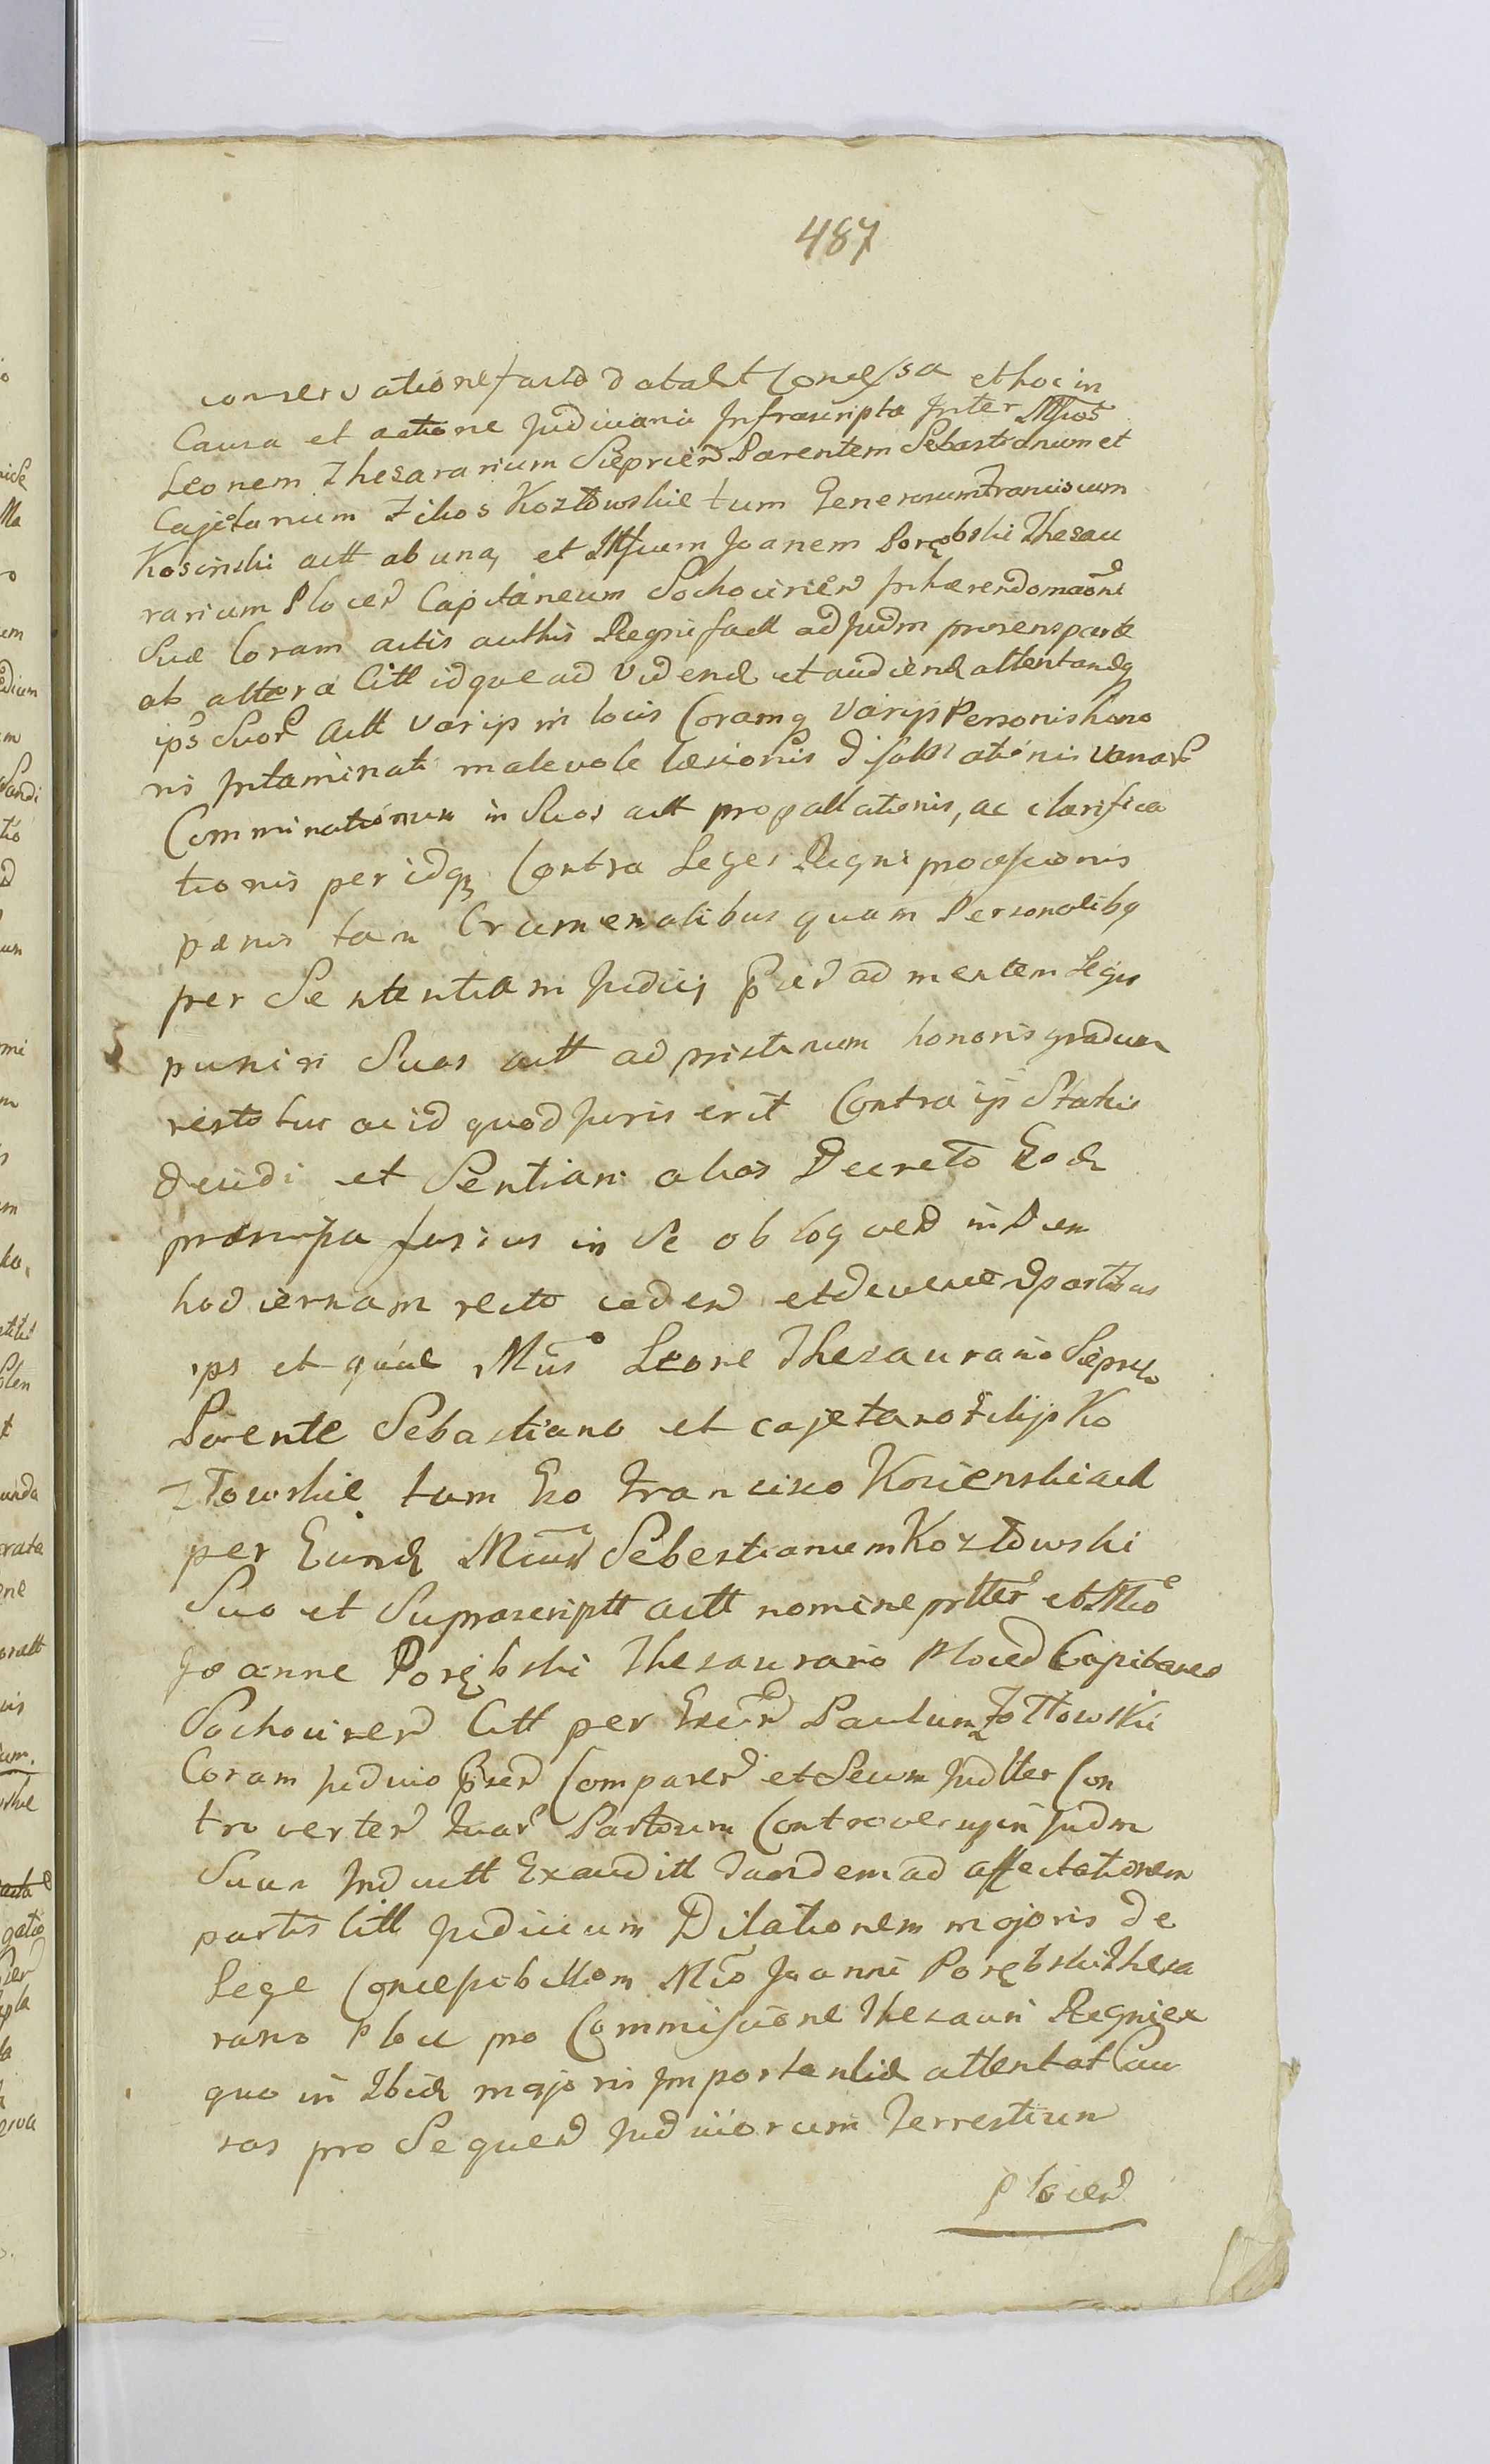 487
conservatione facto d abalt Conessa et hoc in
Causa et actione Judiciaria Infrascripta Inter Mfcos
Leonem Thesararium Sieprcien Parentem Sebastianum et
Cajetanum Filios Kozłowskie tum Generosum Franciscum
Kosinski actt ab una, et Mfcum Joanem Porębski Thesau
rarium Plocen Capitaneum Sochocinen Inhaerendo maoni
Suae Coram actis authis Regni fact ad Judm praesens parte
ab altera Citt idque ad Vidend et audiend attentandq
ips Suor Actt varijs in locis Coramq Varijs Personis hono
ris Intaminati malevole laesionis difamationis vanar
Comminationum in Suos actt propallationis, ac clarifica
tionis per idq Contra Leges Regni processionis
paenis tam Crumenalibus quam Personalibq
per Sententiam Judicij Prsen ad mentem Legis
puniri Suos actt ad pristinum honoris gradum
restitui ac id quod Juris erit Contra ips Statui
decidi et Sentiari alias Decreto Eod
fusius in Se ob loq uen in Diem
hodiernam recte caden et deveneren partibus
ips et quae Mcis Leone Thesaurario Sieprc
Parente Sebastiano et cajetano Filijs Ko
złowskie tum Gso Francisco Kosienski act
per Eund Mcum Sebestianum Kozłowski
Suo et Suprascriptt actt nomine prtter et Mco
Joanne Porębski Thesaurario Plocen Capitaneo
Sochocinen Citt per Gsum Paulum Zołtowski
Coram Judicio Prsen Comparen et Secum Judtter Con
troverten Quar Partium Controversijs in Judm
Suum Inductt Exauditt Tandem ad affectationem
partis Citt Judicium Dilationem majoris de
Lege Concessibillem Mco Joanni Porębski Thesa
rario Ploce pro Commissione Thesauri Regni ex
quo in Ibid majoris Importantiae attentat Cau
sas pro Sequen Judiciorum Terrestrium
Plocen